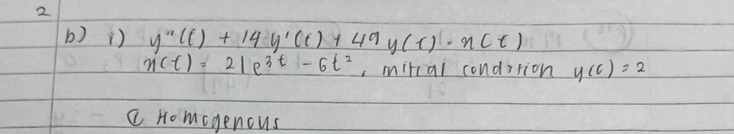 2
b) i) y"(t) + 14 y'(t) + 49 y(t) = x(t)
x(t) = 21e^{3t} - 6t², initial condition y(0) = 2
① Homogenous